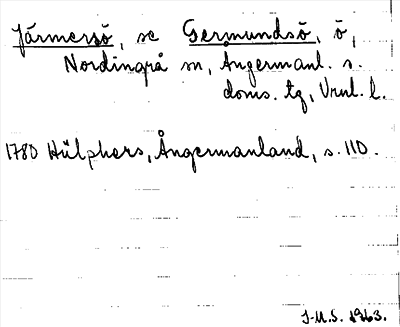 Järmersö, se Germundsö, ö,
Nordingrå sn, Ångermanl. s.
doms. tg, Vnl. l.
1780 Hülphers, Ångermanland, s. 110.
J-M.S. 1963.